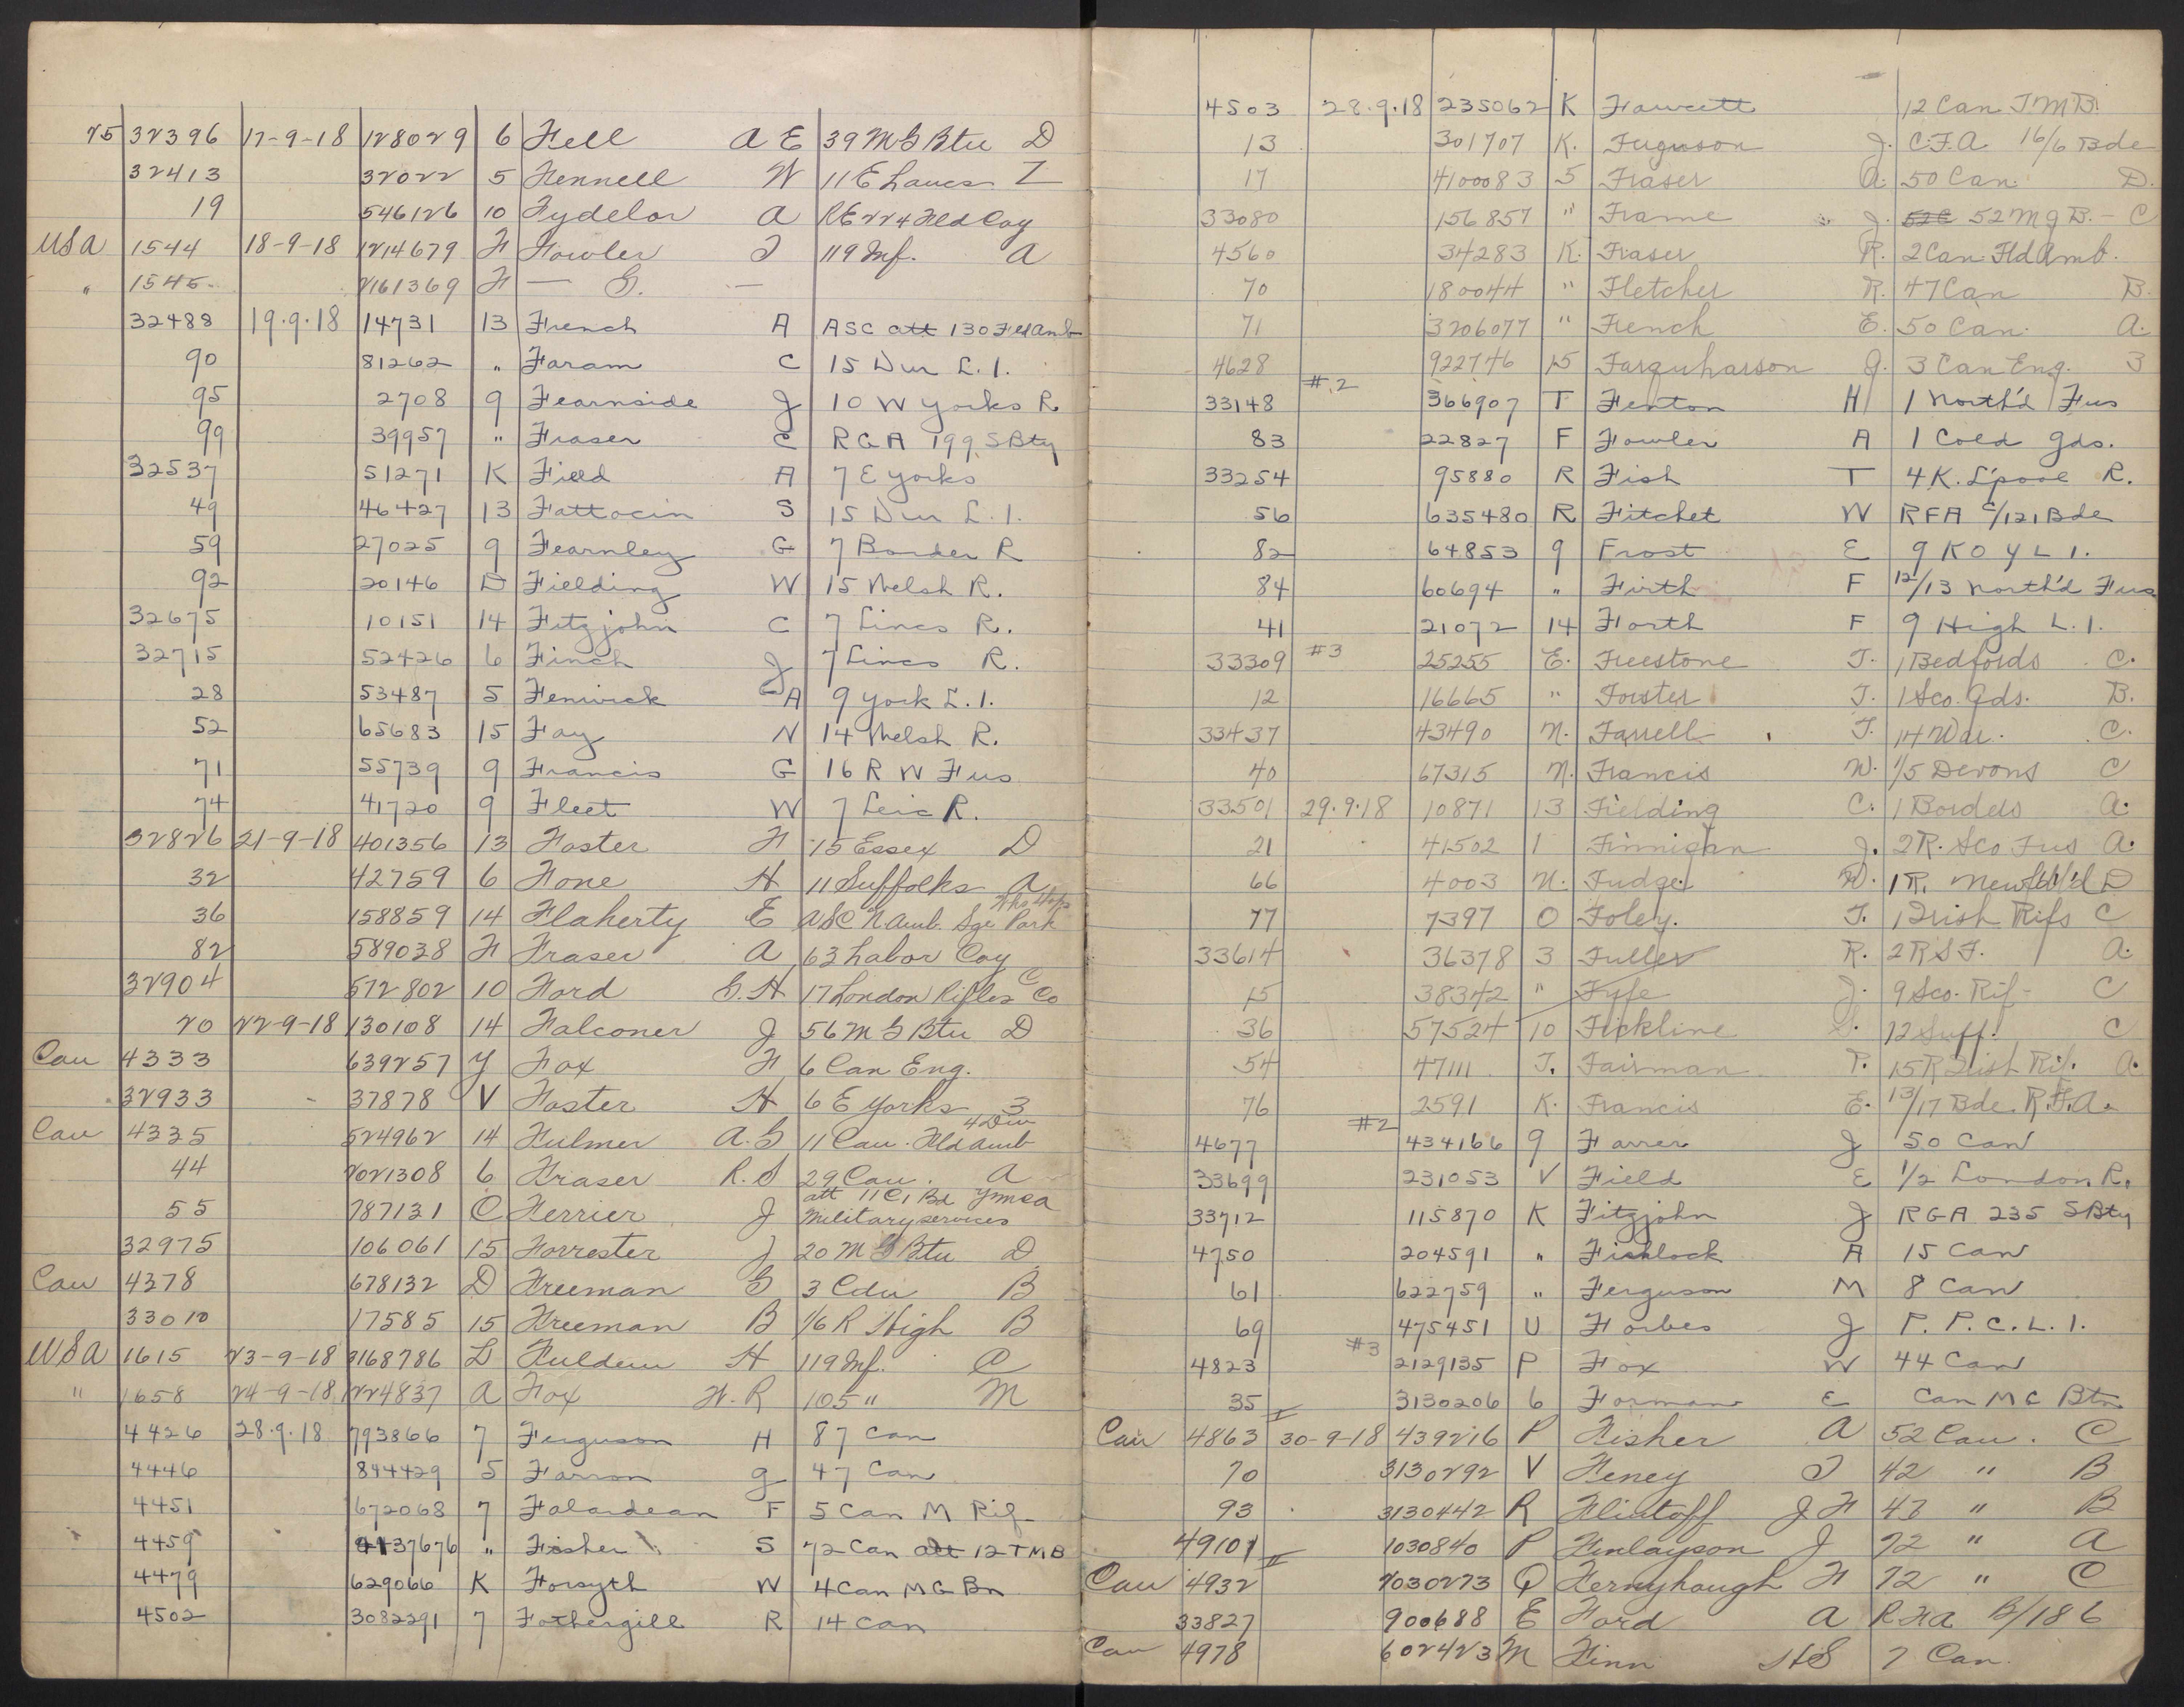 25 32396 17-9-18 128029 6 Fell A E 39 M G Btn D
32413 32022 5 Fennell W 11 E Lancs Z
19 546126 10 Fydelor A R E 224 Fld Coy
USA 1544 18-9-18 1214679 F Fowler J 119 Inf. A
" 1545 2161369 F — G. —
32488 19.9.18 14731 13 French A ASC att 130 Fld Amb
90 81262 " Faram C 15 Dur L.I.
95 2708 9 Fearnside J 10 W Yorks R
99 39957 " Fraser C RGA 199 S Bty
32537 51271 K Field A 7 E Yorks
49 46427 13 Fattocin S 15 Dur L.I.
59 27025 9 Fearnley G 7 Border R
92 20146 D Fielding W 15 Welsh R.
32675 10151 14 Fitzjohn C 7 Lincs R.
32715 52426 6 Finch J 7 Lincs R.
28 53487 5 Fenwick A 9 York L.I.
52 65683 15 Fay N 14 Welsh R.
71 55739 9 Francis G 16 R W Fus
74 41720 9 Fleet W 7 Leic R.
32826 21-9-18 401356 13 Foster F 15 Essex D
32 42759 6 Fone H 11 Suffolks A
36 158859 14 Flaherty E ASC Amb. Sge Park
82 589028 F Fraser A 63 Labor Coy
32904 572802 10 Ford G.H 17 London Rifles C Co
20 22-9-18 130108 14 Falconer J 56 M G Btn D
Can 4333 639257 Y Fox F 6 Can Eng.
32933 37878 V Foster H 6 E Yorks 3
Can 4335 524962 14 Fulmer A.G 11 Can. Fld Amb 4 Div
44 2021308 6 Fraser R.S 29 Can. A
55 787131 C Ferrier J att 11 C I Bd YMCA Military services
32975 106061 15 Forrester J 20 M G Btn D
Can 4378 678132 D Freeman G 3 Cdn B
33010 17585 15 Freeman B 1/6 R High B
USA 1615 23-9-18 3168786 L Fuldem H 119 Inf. C
" 1658 24-9-18 1224837 A Fox H.R 105 " M
4426 28.9.18 793866 7 Ferguson H 87 Can
4446 844429 5 Farron G 47 Can
4451 672068 7 Falardean F 5 Can M Rif
4459 4437676 " Fisher S 72 Can att 12 TMB
4479 629066 K Forsyth W 4 Can MG Bn
4502 3082291 7 Fothergill R 14 Can
4503 28.9.18 235062 K Fawcett 12 Can T M B.
13 301707 K. Ferguson J. C.F.A. 16/6 Bde
17 4100083 5 Fraser A. 50 Can. D.
33080 156857 " Frame J. 52C 52 M G B. - C
4560 34283 K. Fraser R. 2 Can Fld Amb.
70 180044 " Fletcher R. 47 Can B.
71 3206077 " French E. 50 Can. A.
4628 922746 15 Farquharson G. 3 Can Eng. 3
33148 #2 366907 T Fenton H 1 North'd Fus
83 22827 F Fowler A 1 Cold Gds.
33254 95880 R Fish T 4 K. L'pool R.
56 635480 R Fitchet W RFA C/121 Bde
82 64853 9 Frost E 9 K O Y L I.
84 60694 " Firth F 12/13 North'd Fus
41 21072 14 Forth F 9 High L.I.
33309 #3 25255 E. Freestone T. 1 Bedfords C.
12 16665 " Forster T. 1 Sco. Gds. B.
33437 43490 N. Farrell T. 14 War. C.
40 67315 N. Francis W. 1/5 Devons C
33501 29.9.18 10871 13 Fielding C. 1 Borders A.
21 41502 1 Finnighn J. 2 R. Sco Fus A.
66 4003 N. Fudge W. 1 R. Newf'd'l'd D
77 7397 O Foley. T. 1 Irish Rifs C
33614 36378 3 Fuller R. 2 R S F. A.
15 38342 " Fyfe J. 9 Sco. Rif- C
36 57524 10 Fickline S. 12 Suff. C
54 47111 J. Fairman P. 15 R Irish Rif. A.
76 2591 K. Francis E. 13/17 Bde. R.F.A.
4677 #2 434166 9 Farrer J 50 Can
33699 231053 V Field E 1/2 London R.
33712 115870 K Fitzjohn J RGA 235 S Bty
4750 204591 " Fishlock A 15 Can
61 622759 " Ferguson M 8 Can
69 475451 U Forbes J P.P.C.L.I.
4823 #3 2129135 P Fox W 44 Can
35 3130206 6 Forman E Can M G Btn
Can 4863 30-9-18 439216 P Fisher A 52 Can. C
70 3130292 V Feney J 42 " B
93 3130442 R Flintoff J F 47 " B
49101 1030840 P Finlayson J 72 " A
Can 4932 2030273 Q Fernyhough F 72 " C
33827 900688 E Ford A R F A B/186
Can 4978 602423 M Finn H S 7 Can.